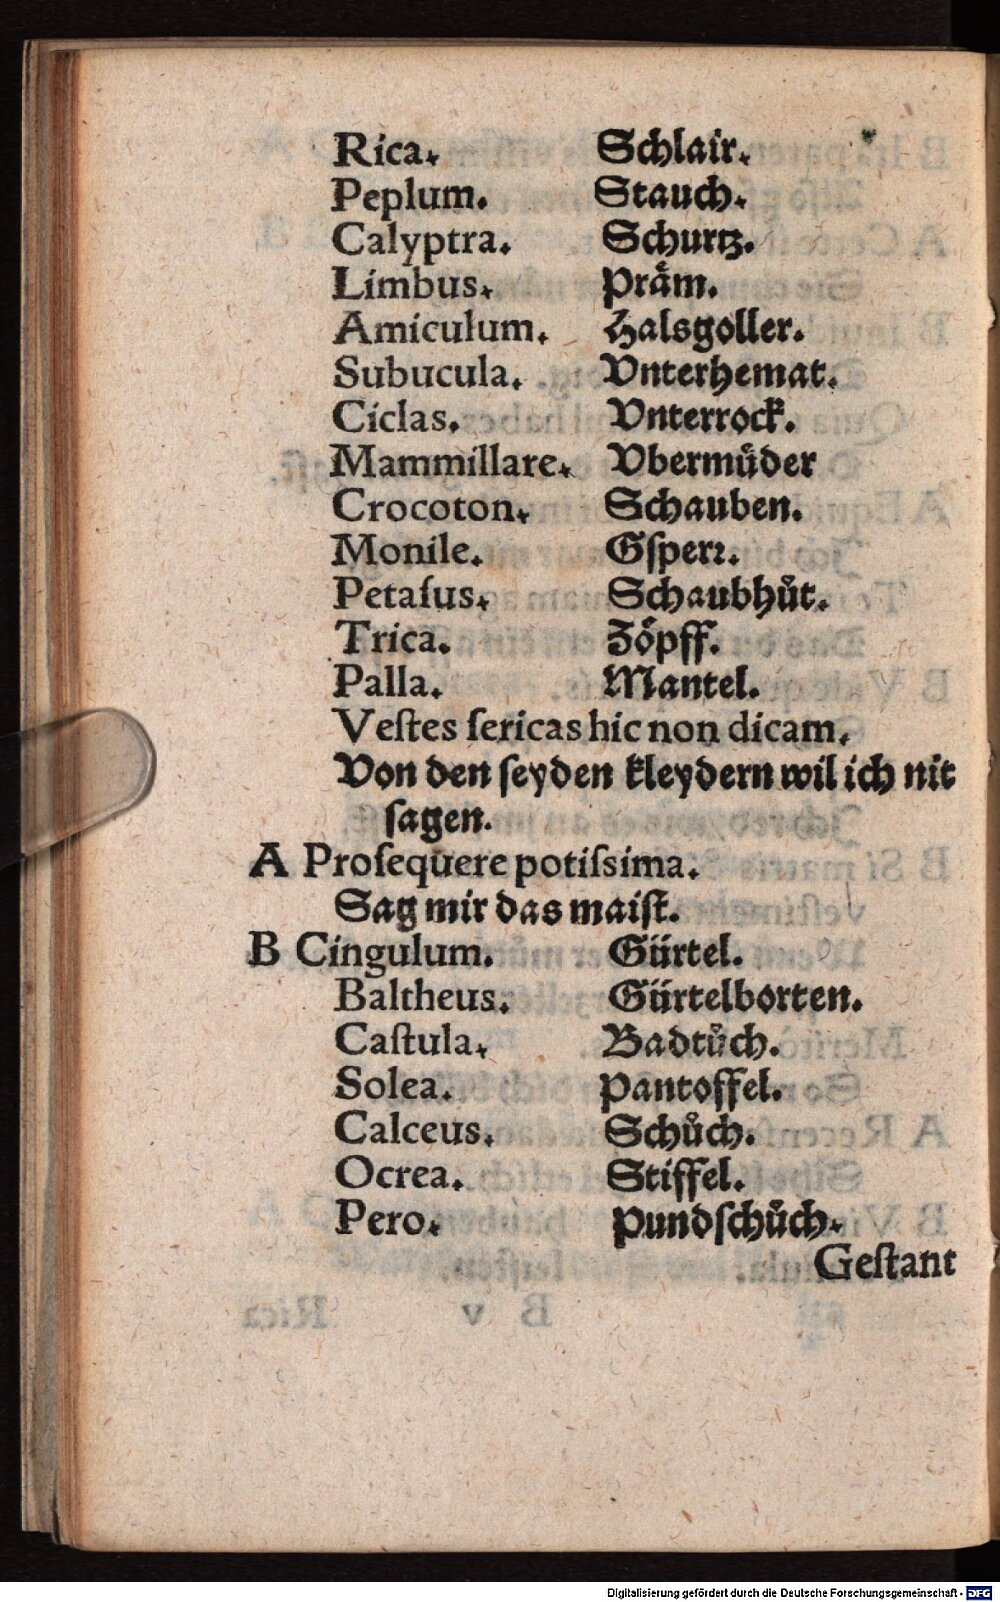 Rica. Schlair.
Peplum. Stauch.
Calyptra. Schurtz.
Limbus. Praͤm.
Amiculum. Halsgoller.
Subucula. Vnterhemat.
Ciclas. Vnterrock.
Mammillare. Vbermuͤder
Crocoton. Schauben.
Monile. Gſperꝛ.
Petaſus. Schaubhuͦt.
Trica. Zoͤpff.
Palla. Mantel.
Veſtes ſericas hic non dicam.
Von den ſeyden kleydern wil ich nit
ſagen.
A Proſequere potiſsima.
Sag mir das maiſt.
B Cingulum. Guͤrtel.
Baltheus. Guͤrtelborten.
Caſtula. Badtuͦch.
Solea. Pantoffel.
Calceus. Schuͦch.
Ocrea. Stiffel.
Pero. Pundſchuͦch.
Geſtant
Digitalisierung gefördert durch die Deutsche Forschungsgemeinschaft - DFG